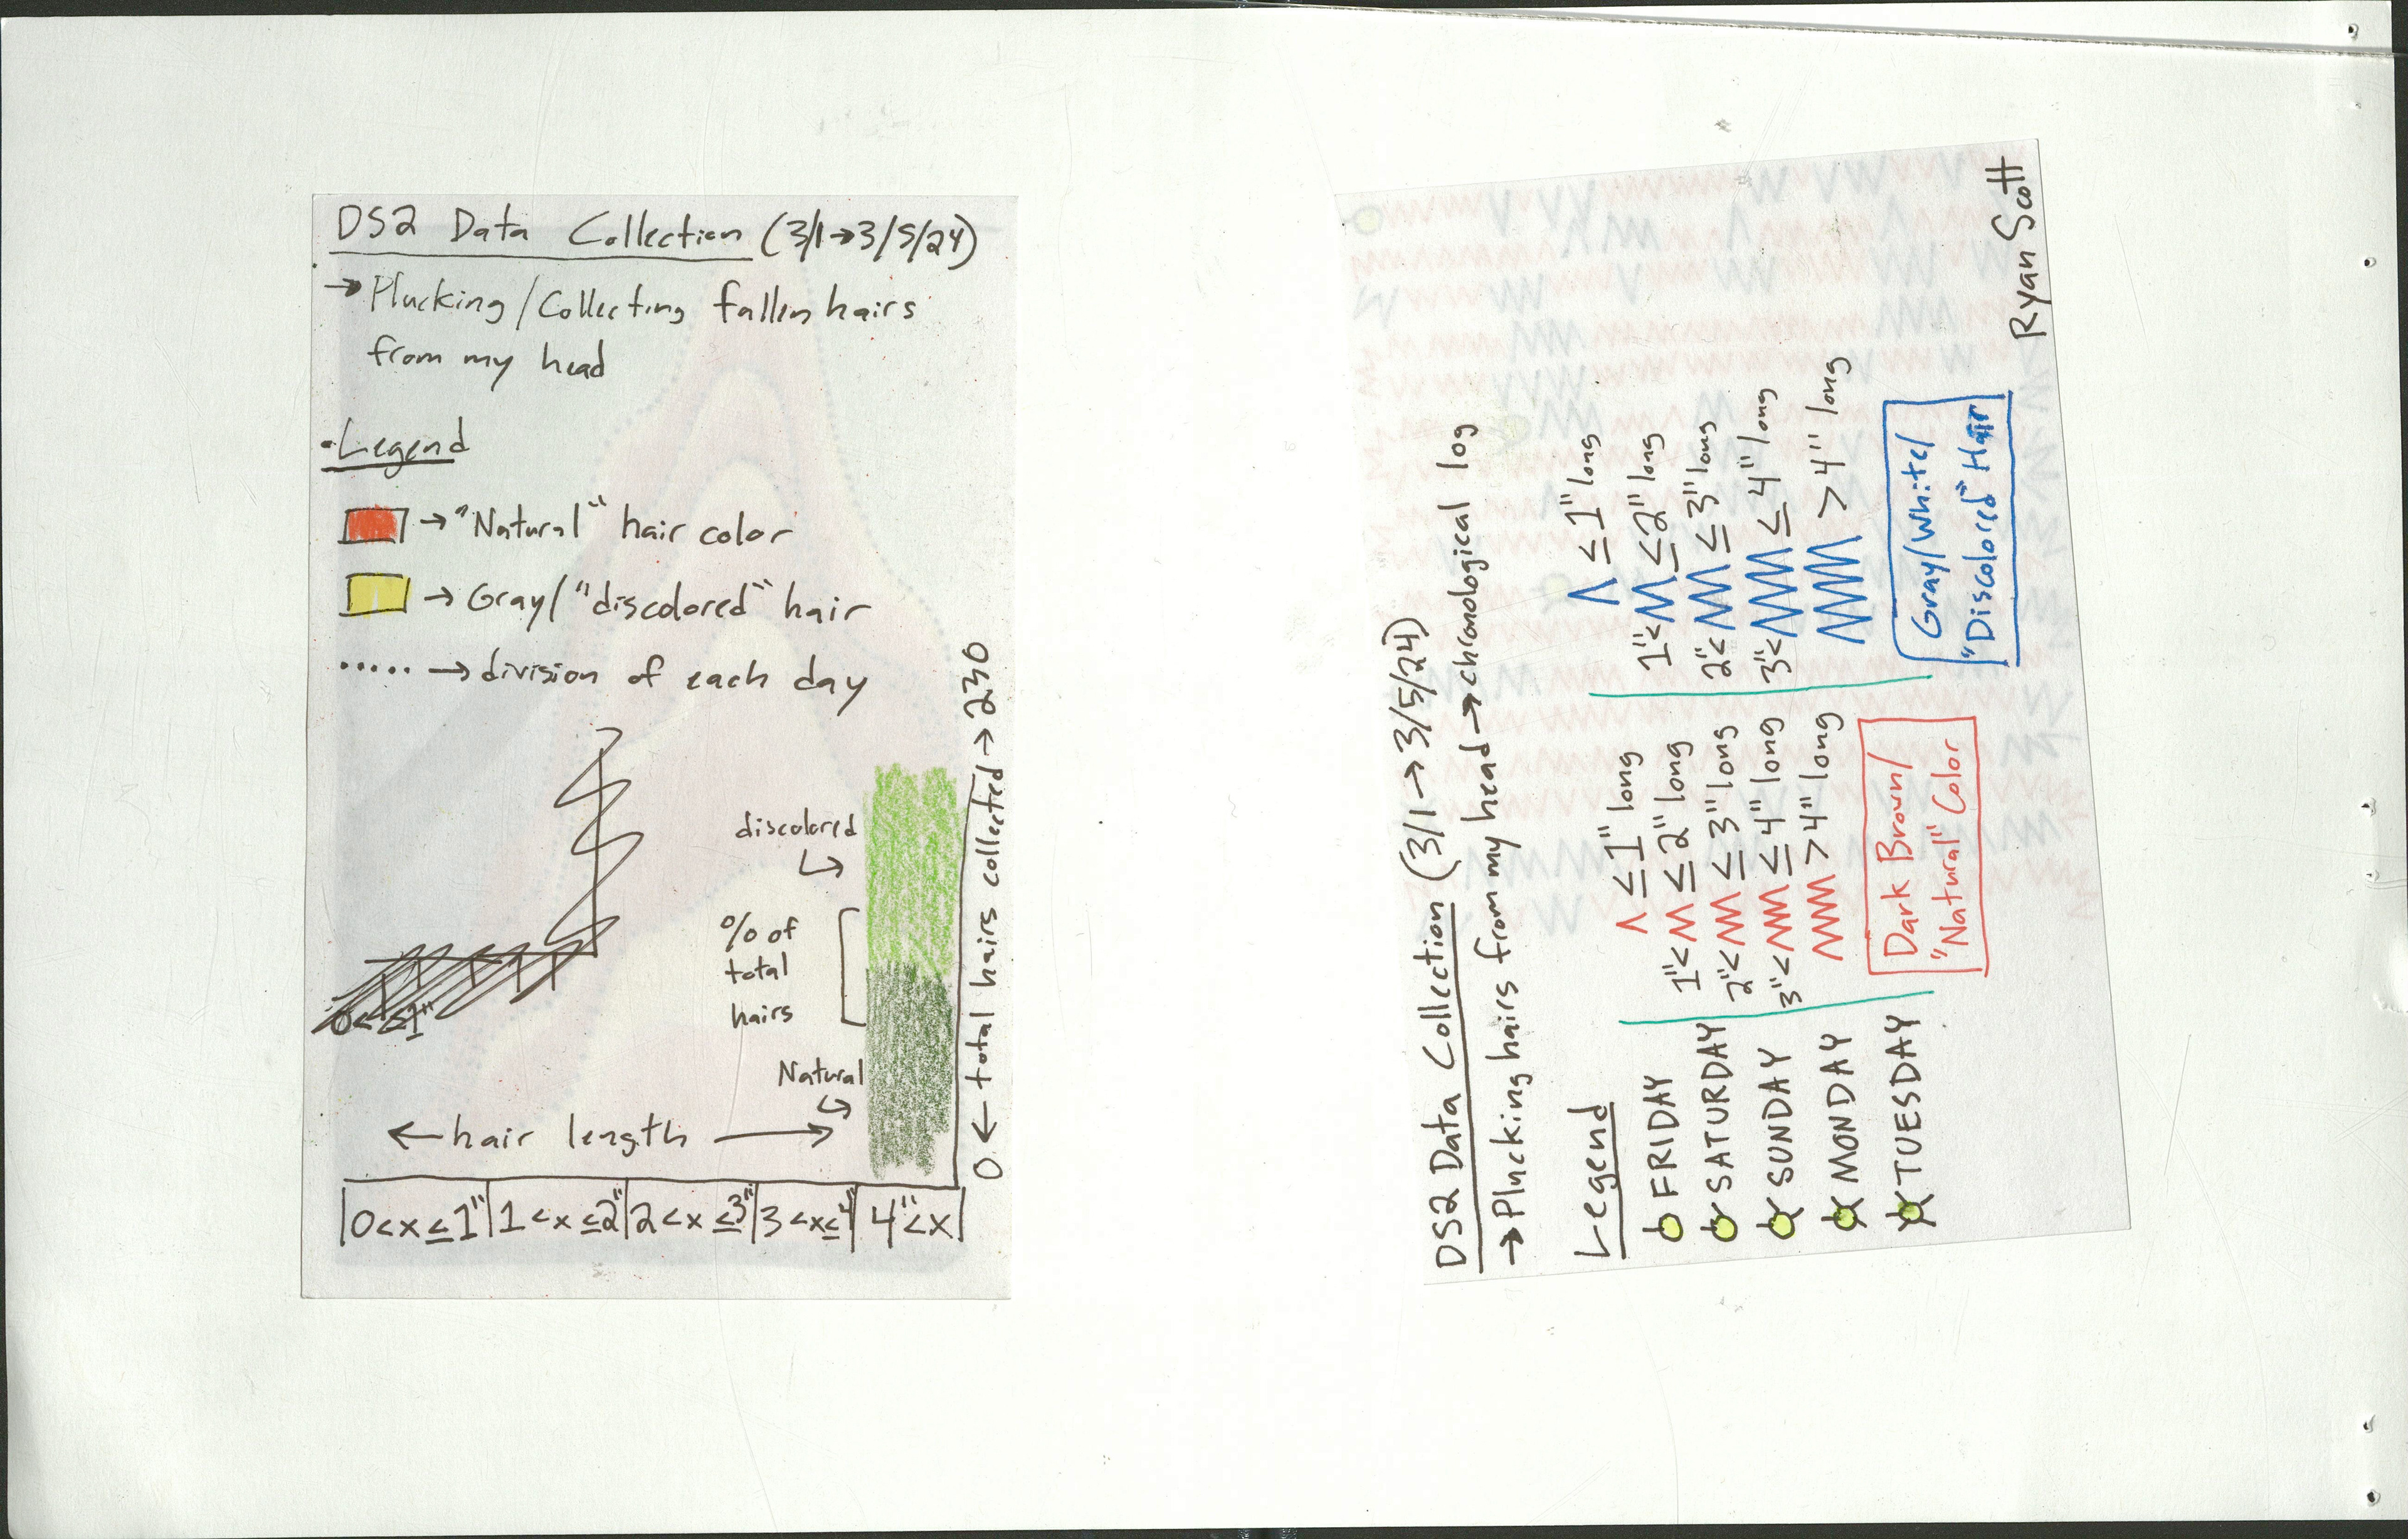 DS2 Data Collection (3/1→3/5/24)
→ Plucking/Collecting fallen hairs
from my head
• Legend
→ "Natural" hair color
→ Gray/"discolored" hair
..... → division of each day
discolored
% of
total
hairs
Natural
← hair length →
0<x≤1" 1<x≤2" 2<x≤3" 3<x≤4" 4"<x
0 ← total hairs collected → 230
0<≤1"
DS2 Data Collection (3/1→3/5/24)
→ Plucking hairs from my head → chronological log
Legend
FRIDAY
SATURDAY
SUNDAY
MONDAY
TUESDAY
≤1" long
1"< ≤2" long
2"< ≤3" long
3"< ≤4" long
>4" long
Dark Brown/
"Natural" Color
≤1" long
1"< ≤2" long
2"< ≤3" long
3"< ≤4" long
>4" long
Gray/White/
"Discolored" Hair
Ryan Scott